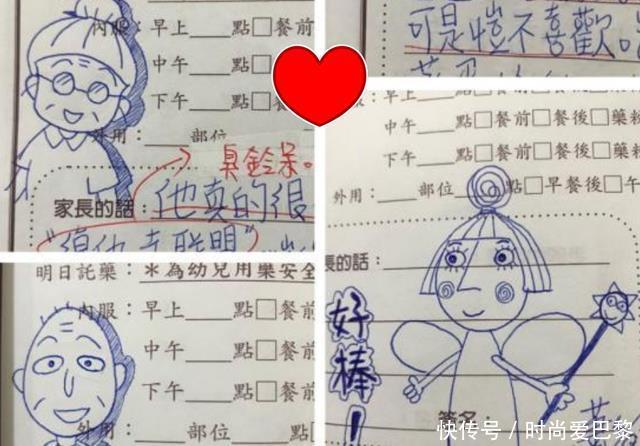 內服：早上___點□餐前
中午___點□
下午___點□
外用：___部位
臭鈴呆。
家長的話：他真的很
明日託藥：＊為幼兒用藥安全
內服：早上___點□餐前
中午___點□餐前
下午___點□餐前
外用：___部位
可是愷不喜歡
早上___點□餐前□
中午___點□餐前□餐後□藥粉
下午___點□餐前□餐後□藥
外用：___部位___點□早餐後□午
長的話：
好棒！
簽名：
快传号／时尚爱巴黎